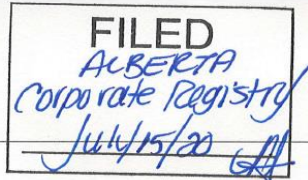 FILED
ALBERTA
Corporate Registry
July/15/20